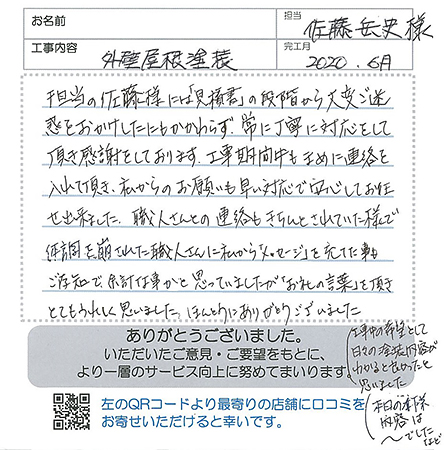 お名前
担当 佐藤岳史様
工事内容 外壁屋根塗装
完工月 2020.6月
担当の佐藤様には「見積書」の段階から大変ご迷
惑をおかけしたにもかかわらず、常に丁寧に対応をして
頂き感謝をしております。工事期間中もまめに連絡を
入れて頂き、私からのお願いも早い対応で安心してお任
せ出来ました。職人さんとの連絡もきちんとされていた様で
体調を崩された職人さんに私から「メッセージ」を充てた事も
ご存知で余計な事かと思っていましたが「お礼の言葉」を頂き
とてもうれしく思いました。ほんとうにありがとうございました
ありがとうございました。
いただいたご意見・ご要望をもとに、
より一層のサービス向上に努めてまいります。
工事中の希望として
日々の塗装内容が
わかると良かったと
思いました
本日の作業
内容は
〜でした
など
左のQRコードより最寄りの店舗に口コミを
お寄せいただけると幸いです。